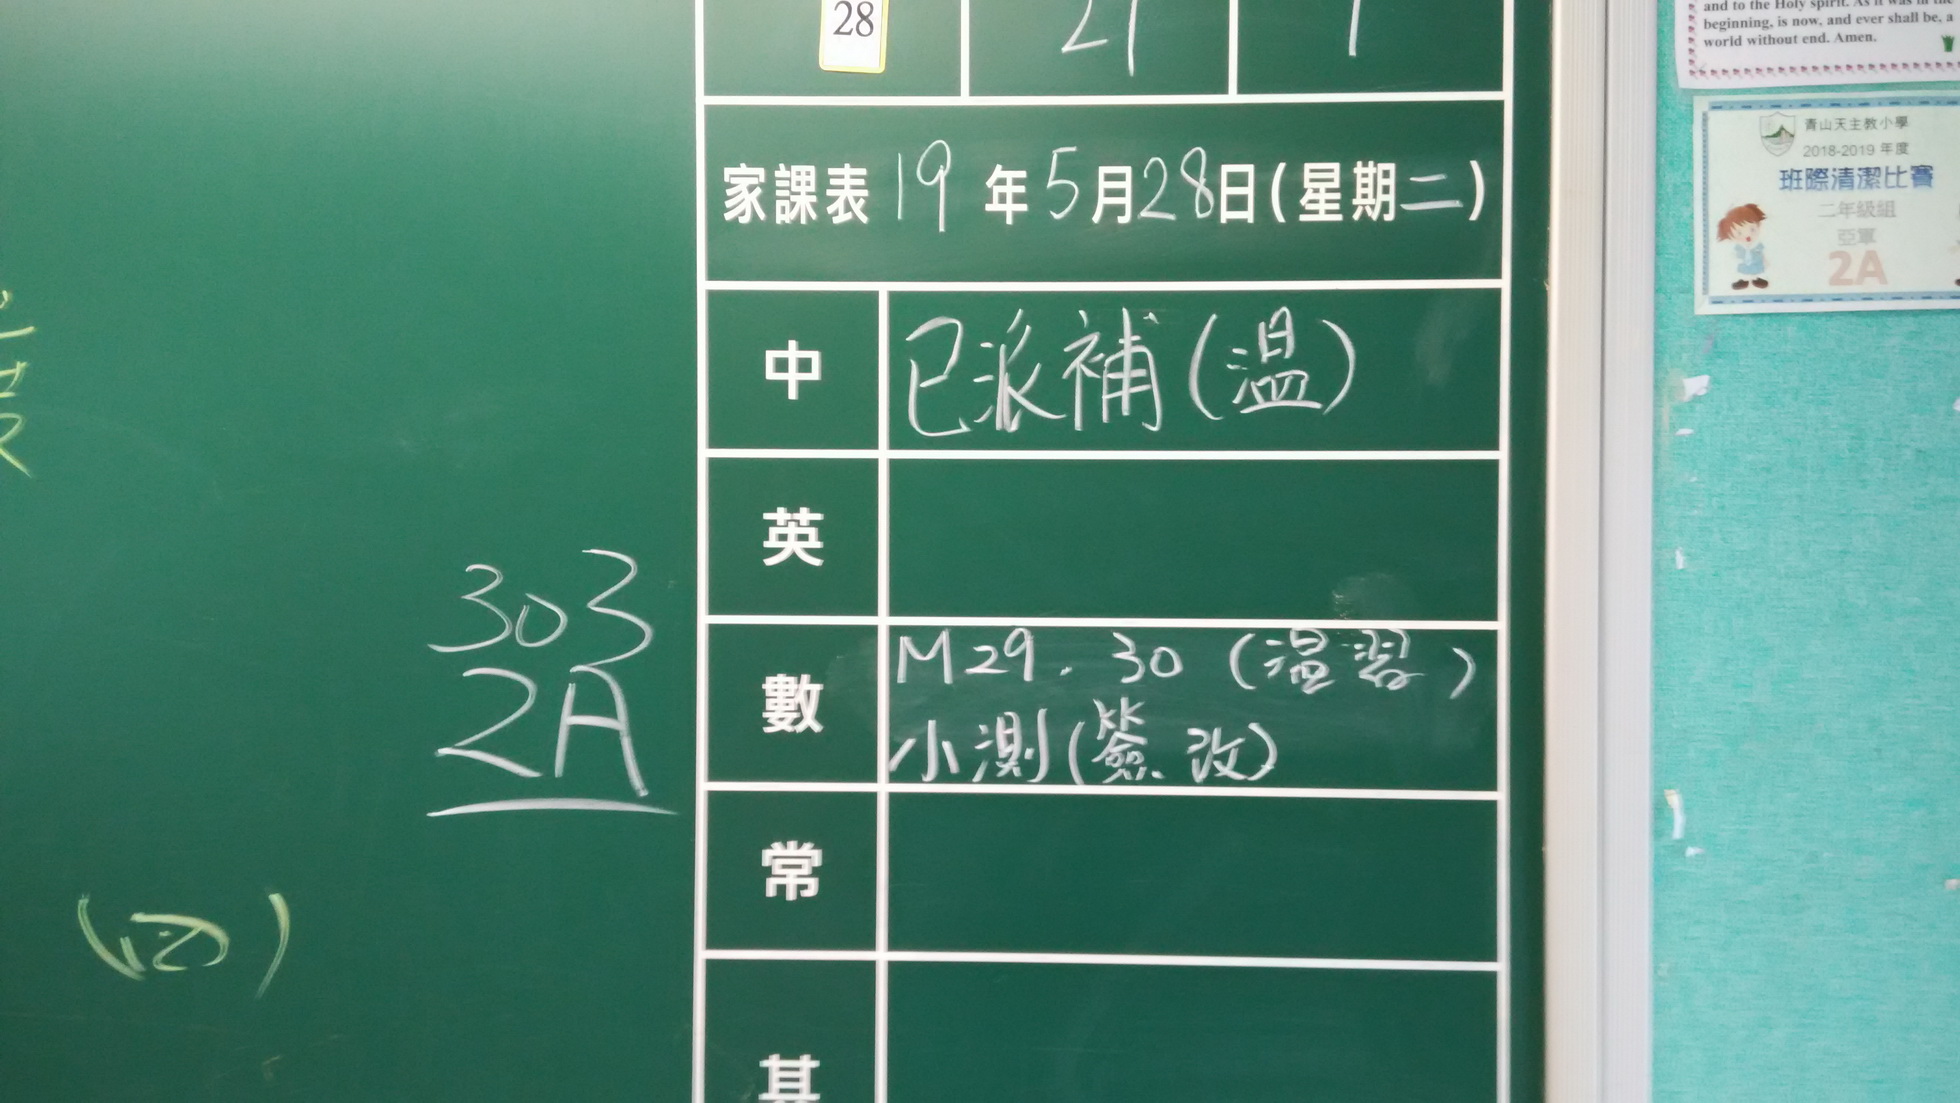 28
27
1
家課表 19 年 5 月 28 日 ( 星期二 )
中
已派補 (溫)
英
數
M29. 30 (溫習)
小測 (簽改)
常
303
2A
(四)
and to the Holy spirit. As it was in the
beginning, is now, and ever shall be, a
world without end. Amen.
青山天主教小學
2018-2019 年度
班際清潔比賽
二年級組
亞軍
2A